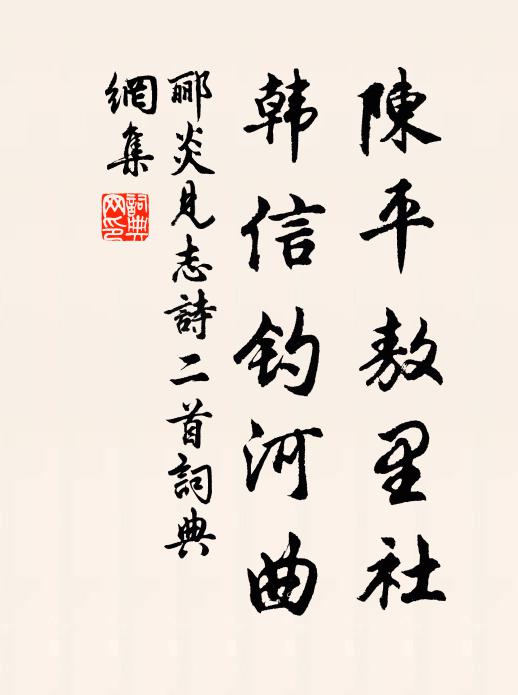 陳平敖里社
韩信钓河曲
郦炎見志詩二首詞典
網集
詞典
网印